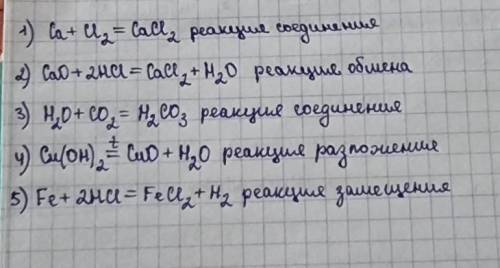 1) Ca + Cl₂ = CaCl₂ реакция соединения
2) CaO + 2HCl = CaCl₂ + H₂O реакция обмена
3) H₂O + CO₂ = H₂CO₃ реакция соединения
4) Cu(OH)₂ =ᵗ CuO + H₂O реакция разложения
5) Fe + 2HCl = FeCl₂ + H₂ реакция замещения